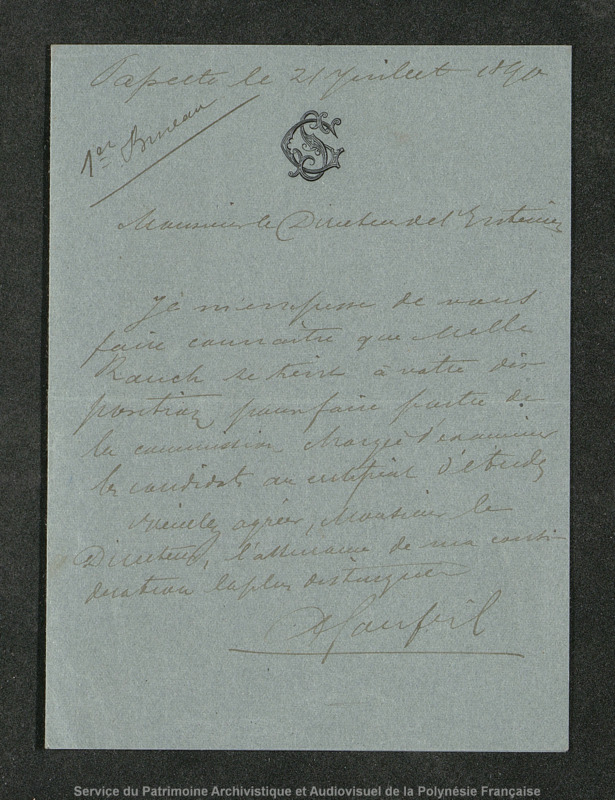 Papeete le 21 Juillet 1890
1er Bureau
Monsieur le Directeur de l'Intérieur
Je m'empresse de vous
faire connaître que Melle
Rauch se tient à votre dis
position pour faire partie de
la commission chargée d'examiner
les candidats au certificat d'études
Veuillez agréer, Monsieur le
Directeur, l'assurance de ma consi
dération la plus distinguée
Service du Patrimoine Archivistique et Audiovisuel de la Polynésie Française